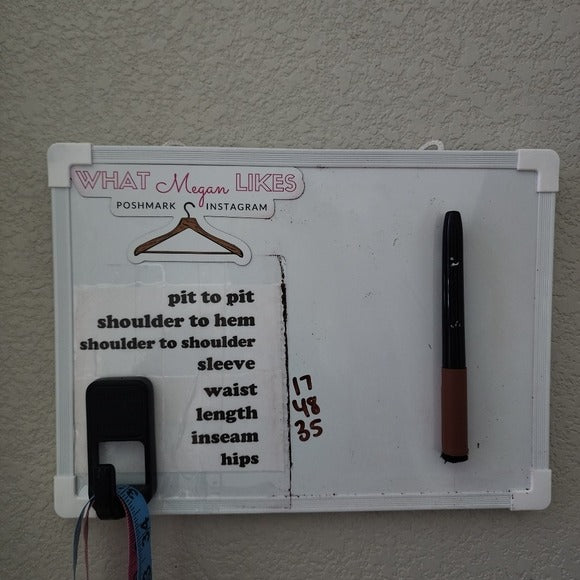 WHAT Megan LIKES
POSHMARK INSTAGRAM
pit to pit
shoulder to hem
shoulder to shoulder
sleeve
waist 17
length 48
inseam 35
hips